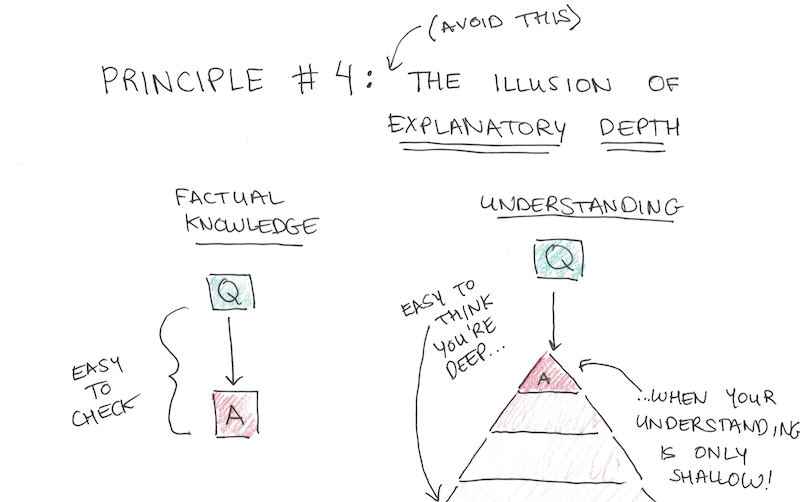 (AVOID THIS)
PRINCIPLE # 4: THE ILLUSION OF
EXPLANATORY DEPTH
FACTUAL
KNOWLEDGE
Q
EASY
TO
CHECK
A
UNDERSTANDING
Q
EASY TO
THINK
YOU'RE
DEEP...
A
...WHEN YOUR
UNDERSTANDING
IS ONLY
SHALLOW!